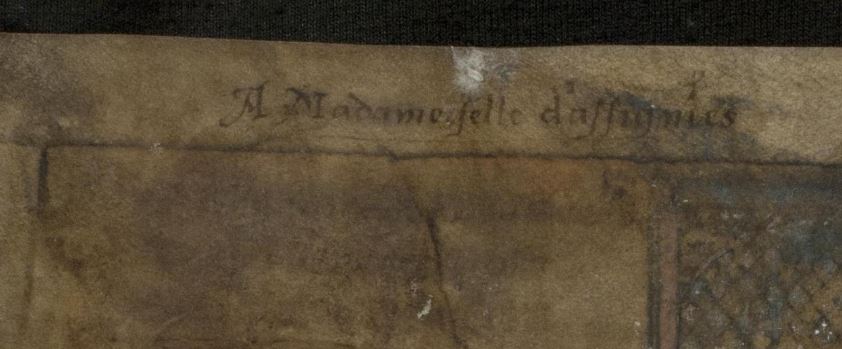 A Madamoiselle d'assignies